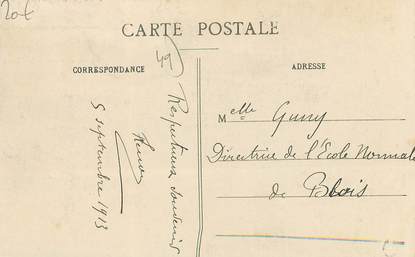 20€
CARTE POSTALE
49
CORRESPONDANCE
ADRESSE
Respectueux souvenir
5 septembre 1913
Melle Guny
Directrice de l'École Normale
de Blois